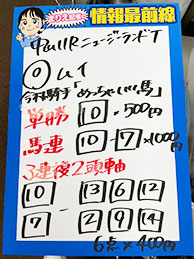 まりえ記者の情報最前線
中山11RニュージーランドT
◎ムイ
今村騎手「めっちゃいい馬」
単勝 10 - 500円
馬連 10 - 7 ×1000円
3連複2頭軸
10 - 13 6 12
7 - 2 9 14
6点×400円